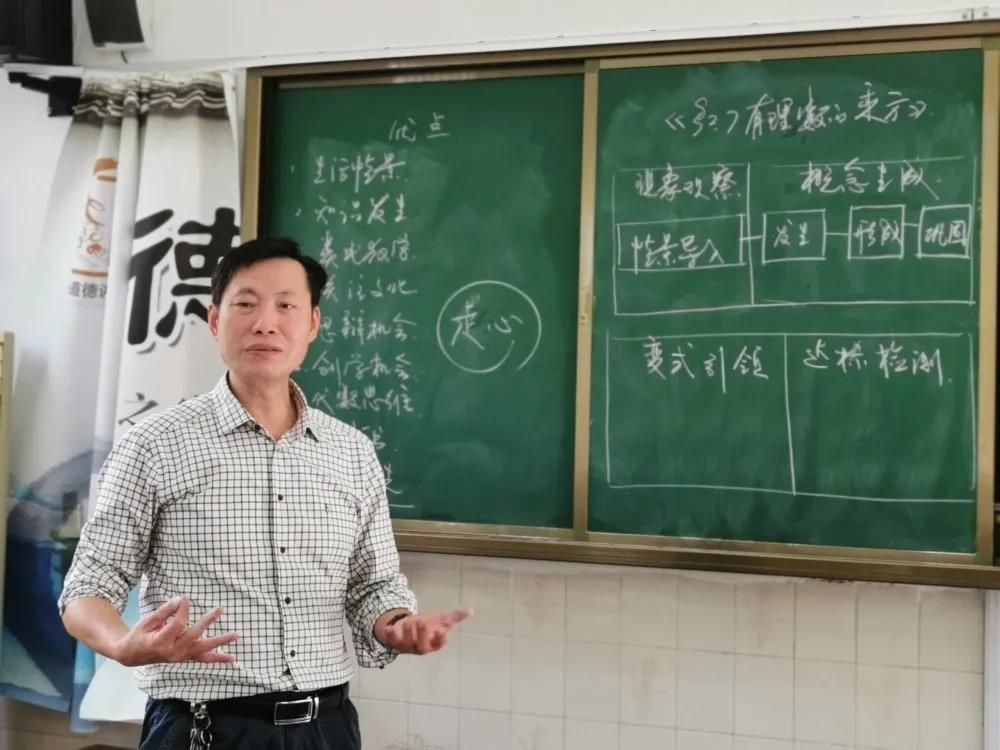 优点
生活情景
知识发生
类比教学
关注文化
思辨机会
创学机会
代数思维
走心
《§2.7有理数的乘方》
现象观察 概念生成
情景导入 发生 形成 巩固
变式引领 达标检测
道德
德
之